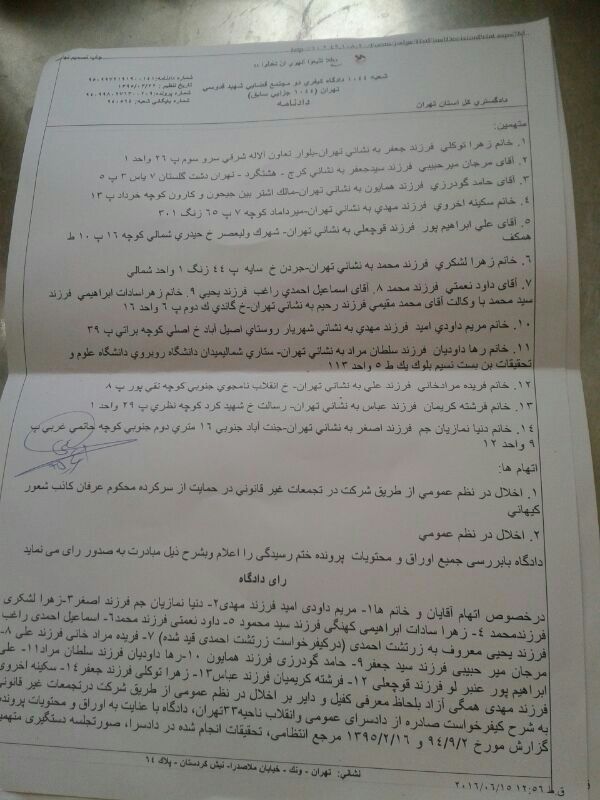 چاپ تصمیم نها
«« فلا تتبعوا الهوي ان تعدلوا »»
شعبه ۱۰۴۴ دادگاه کیفری دو مجتمع قضایی شهید قدوسی
تهران (۱۰۴۴ جزایی سابق)
دادنامه
شماره دادنامه:
تاریخ تنظیم : ۱۳۹۵/۰۳/۲۲
شماره پرونده:
شماره بایگانی شعبه:
دادگستري کل استان تهران
متهمین:
۱. خانم زهرا توکلي فرزند جعفر به نشاني تهران-بلوار تعاون آلاله شرقي سرو سوم پ ۲۶ واحد ۱
۲. آقای مرجان میرحبیبي فرزند سیدجعفر به نشاني کرج - هشتگرد - تهران دشت گلستان ۷ یاس ۳ پ ۵
۳. آقاي حامد گودرزي فرزند همایون به نشاني تهران-مالك اشتر بین جیحون و کارون کوچه خرداد پ ۱۳
۴. خانم سکینه اخروي فرزند مهدي به نشاني تهران-میرداماد کوچه ۷ پ ۶۵ زنگ ۳۰۱
۵. آقاي علي ابراهیم پور فرزند قوچعلي به نشاني تهران- شهرك ولیعصر خ حیدري شمالي کوچه ۱۶ پ ۱۰ ط
همکف
۶. خانم زهرا لشکري فرزند محمد به نشاني تهران-جردن خ سایه پ ۴۴ زنگ ۱ واحد شمالي
۷. آقاي داود نعمتي فرزند محمد ۸. آقاي اسماعیل احمدي راغب فرزند یحیي ۹. خانم زهراسادات ابراهیمي فرزند
سید محمد با وکالت آقای محمد مقیمي فرزند رحیم به نشاني تهران-خ گاندي ك دوم پ ۶ واحد ۱۶
۱۰. خانم مریم داودي امید فرزند مهدي به نشاني شهریار روستاي اصیل آباد خ اصلي کوچه براتي پ ۳۹
۱۱. خانم رها داودیان فرزند سلطان مراد به نشاني تهران- ستاري شمالیمیدان دانشگاه روبروي دانشگاه علوم و
تحقیقات بن بست نسیم بلوك یك ط ۵ واحد ۱۱۳
۱۲. خانم فریده مرادخاني فرزند علي به نشاني تهران- خ انقلاب نامجوي جنوبي کوچه نقي پور پ ۸
۱۳. خانم فرشته کریمان فرزند عباس به نشاني تهران- رسالت خ شهید کرد کوچه نظري پ ۲۹ واحد ۱
۱۴. خانم دنیا نمازیان جم فرزند اصغر به نشاني تهران-جنت آباد جنوبي ۱۶ متري دوم جنوبي کوچه حاتمي غربي پ
۹ واحد ۱۲
اتهام ها:
۱. اخلال در نظم عمومي از طریق شرکت در تجمعات غیر قانوني در حمایت از سرکرده محکوم عرفان کاذب شعور
کیهاني
۲. اخلال در نظم عمومي
دادگاه بابررسي جمیع اوراق و محتویات پرونده ختم رسیدگي را اعلام وبشرح ذیل مبادرت به صدور راي مي نماید
راي دادگاه
درخصوص اتهام آقایان و خانم ها۱- مریم داودی امید فرزند مهدی۲- دنیا نمازیان جم فرزند اصغر۳-زهرا لشکری
فرزندمحمد ۴- زهرا سادات ابراهیمی کهنگی فرزند سید محمود ۵- داود نعمتی فرزند محمد۶- اسماعیل احمدی راغب
فرزند یحیی معروف به زرتشت احمدی (درکیفرخواست زرتشت احمدی قید شده) ۷- فریده مراد خانی فرزند علی ۸-
مرجان میر حبیبی فرزند سید جعفر۹- حامد گودرزی فرزند همایون ۱۰-رها داودیان فرزند سلطان مراد۱۱- علی
ابراهیم پور عنبر لو فرزند قوچعلی ۱۲- فرشته کریمیان فرزند عباس۱۳- زهرا توکلی فرزند جعفر۱۴- سکینه اخروی
فرزند مهدی همگی آزاد بلحاظ معرفی کفیل و دایر بر اخلال در نظم عمومی از طریق شرکت درتجمعات غیر قانونی
به شرح کیفرخواست صادره از دادسرای عمومی وانقلاب ناحیه۳۳تهران، دادگاه با عنایت به اوراق و محتویات پرونده
گزارش مورخ ۹۴/۹/۲ و ۱۳۹۵/۲/۱۶ مرجع انتظامی، تحقیقات انجام شده در دادسرا، صورتجلسه دستگیری متهمین
نشاني: تهران - ونك - خیابان ملاصدرا- نبش کردستان - پلاك ۱۴
ق.ظ ۱۲:۵۶ ۲۰۱۶/۰۶/۱۵